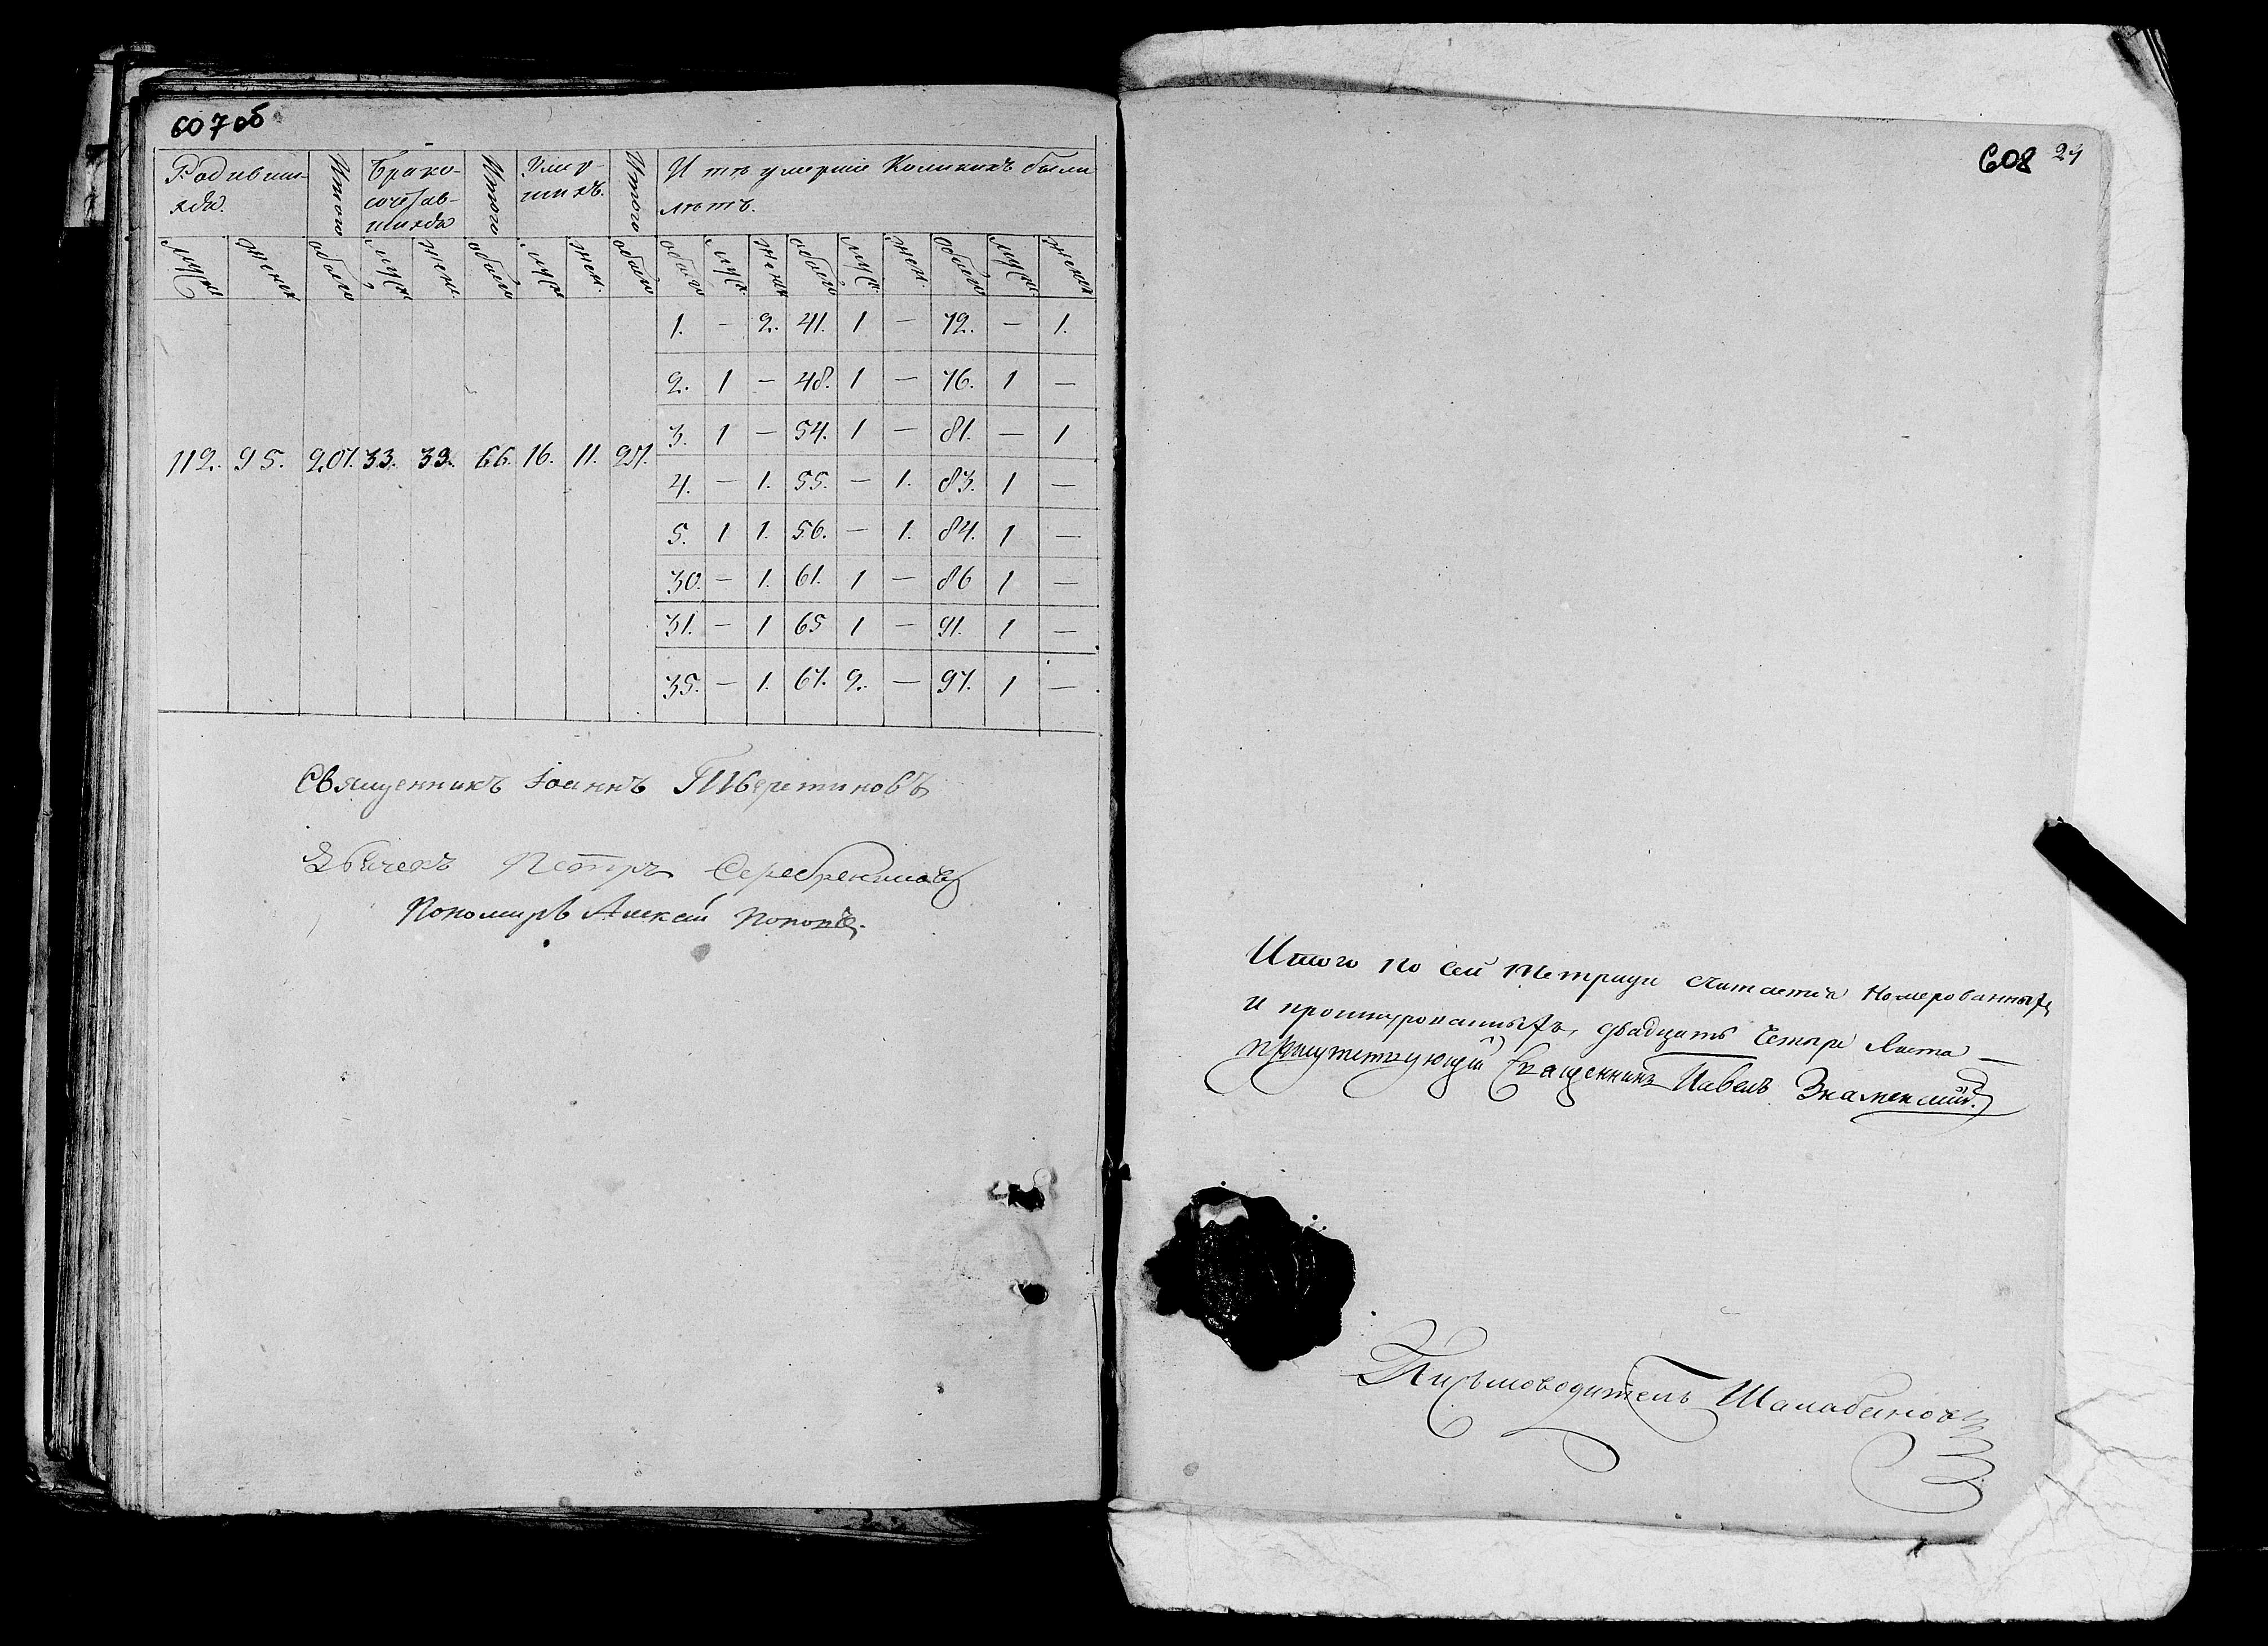 607 об
Родивши- Итого Брако- Итого Умер- Итого И тѣ умершіе Коликихъ были
хся. сочетав- шихъ. лѣтъ.
шихся
муж женск обоего муж жен. обоего муж жен. обоего обоего муж. женск обоего муж. жен. обоего муж. женск
1. — 2. 41. 1 — 72. — 1.
2. 1 — 48. 1 — 76. 1 —
3. 1 — 54. 1 — 81. — 1
112. 95. 207. 33. 33. 66. 16. 11. 27.
4. — 1. 55. — 1. 83. 1 —
5. 1 1. 56. — 1. 84. 1 —
30. — 1. 61. 1 — 86 1 —
31. — 1 65 1 — 91. 1 —
35. — 1. 67. 2. — 97. 1 —
Священникъ Іоаннъ Тверитиновъ
Дьячекъ Петръ Серебренниковъ
Пономарь Алексей Поповъ.
608 24
Итого по сей Метрици считается Номерованныхъ
и прошнурованныхъ, двадцать четыре листа —
присутствующій Священникъ Павелъ Знаменскій.
Письмоводитель Шалабановъ